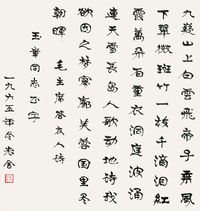 九嶷山上白雲飛帝子乘風
下翠微斑竹一枝千滴淚紅
霞萬朵百重衣洞庭波涌
連天雪長島人歌動地詩我
欲因之夢寥廓芙蓉国里尽
朝暉 毛主席答友人詩
同志正字
一九六五年冬 老舍